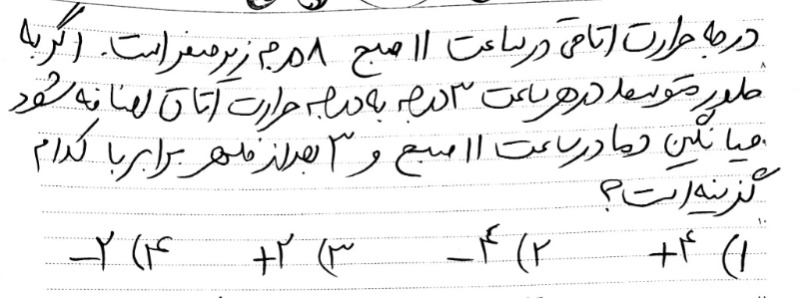 درجه حرارت اتاقی در ساعت ۱۱ صبح ۸ درجه زیر صفر است. اگر به
طور متوسط در هر ساعت ۳ درجه به درجه حرارت اتاق اضافه شود
میانگین دما در ساعت ۱۱ صبح و ۳ بعد از ظهر برابر با کدام
گزینه است؟
۱) +۴ ۲) -۴ ۳) +۲ ۴) -۲